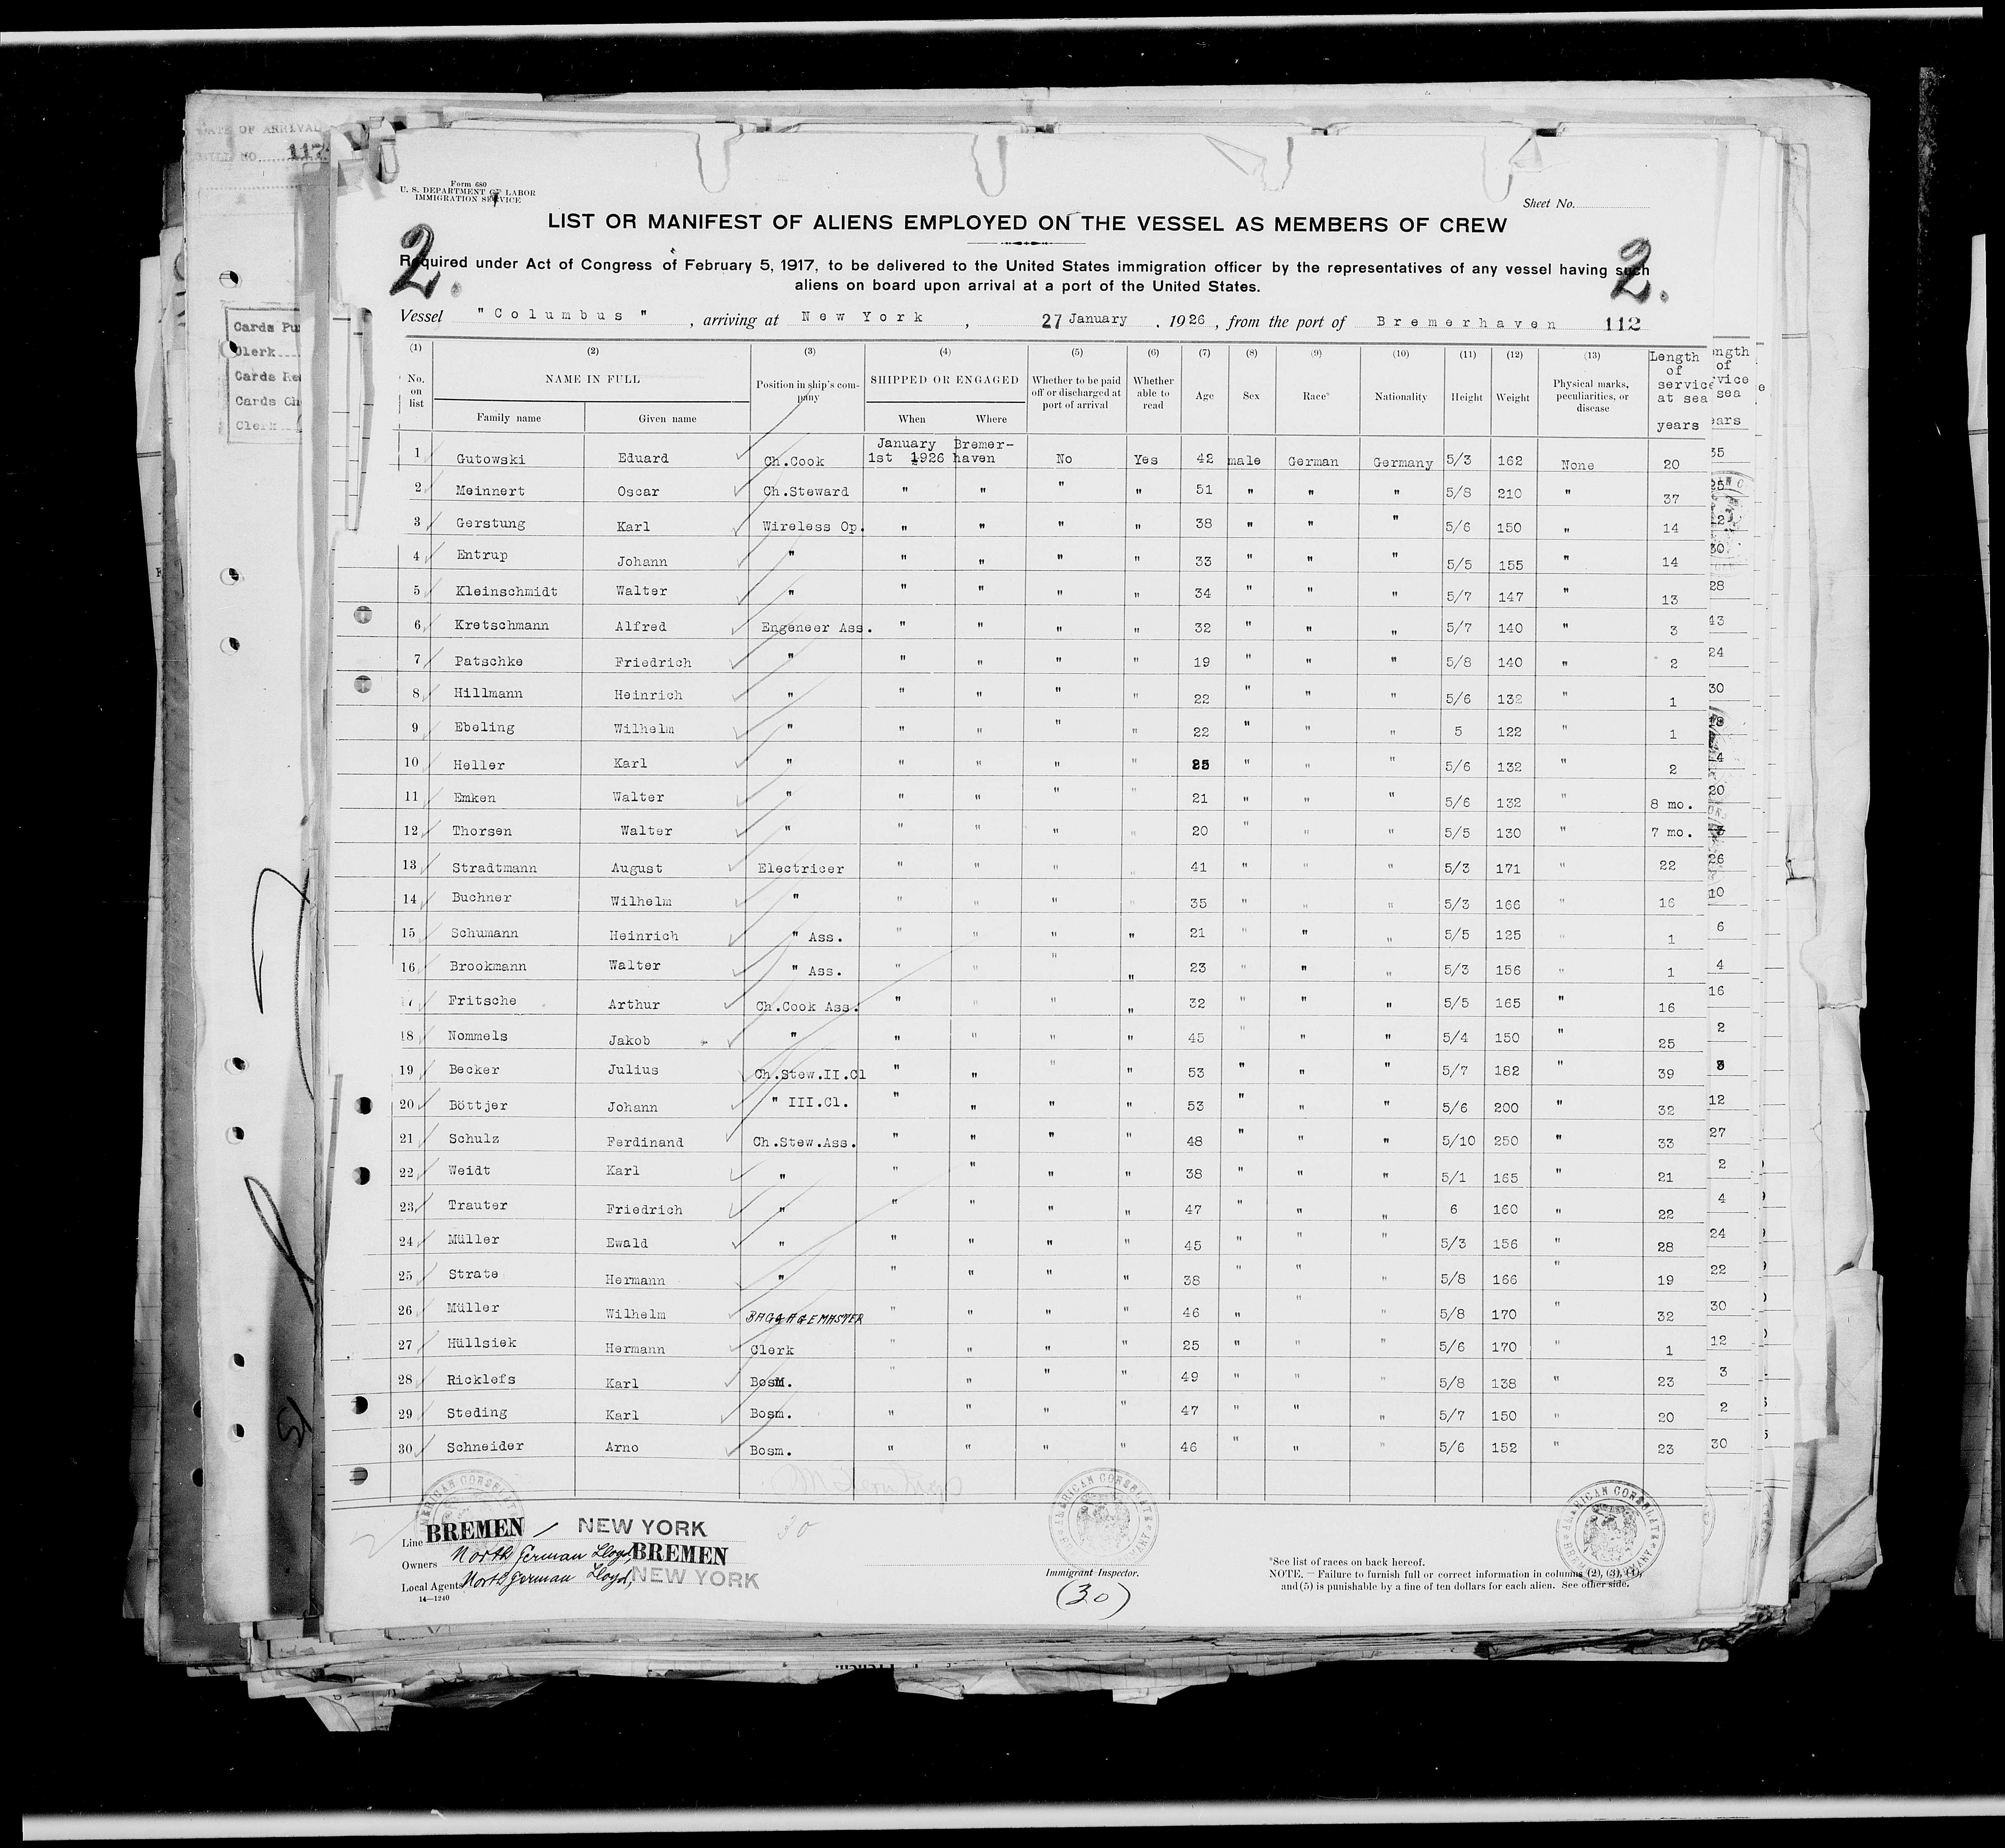 DATE OF ARRIVAL
117
Cards Pu
Clerk
Cards Re
Cards Ch
Clerk
Form 680
U. S. DEPARTMENT OF LABOR
IMMIGRATION SERVICE
Sheet No.
LIST OR MANIFEST OF ALIENS EMPLOYED ON THE VESSEL AS MEMBERS OF CREW
2. 2.
Required under Act of Congress of February 5, 1917, to be delivered to the United States immigration officer by the representatives of any vessel having such
aliens on board upon arrival at a port of the United States.
Vessel "Columbus", arriving at New York, 27 January, 1926, from the port of Bremerhaven 112
(1) (2) (3) (4) (5) (6) (7) (8) (9) (10) (11) (12) (13)
No. on list NAME IN FULL Family name Given name Position in ship's company SHIPPED OR ENGAGED When Where Whether to be paid off or discharged at port of arrival Whether able to read Age Sex Race* Nationality Height Weight Physical marks, peculiarities, or disease Length of service at sea years
1 Gutowski Eduard Ch.Cook January 1st 1926 Bremerhaven No Yes 42 male German Germany 5/3 162 None 20
2 Meinnert Oscar Ch.Steward " " " " 51 " " " 5/8 210 " 37
3 Gerstung Karl Wireless Op. " " " " 38 " " " 5/6 150 " 14
4 Entrup Johann " " " " " 33 " " " 5/5 155 " 14
5 Kleinschmidt Walter " " " " " 34 " " " 5/7 147 " 13
6 Kretschmann Alfred Engeneer Ass. " " " " 32 " " " 5/7 140 " 3
7 Patschke Friedrich " " " " " 19 " " " 5/8 140 " 2
8 Hillmann Heinrich " " " " " 22 " " " 5/6 132 " 1
9 Ebeling Wilhelm " " " " " 22 " " " 5 122 " 1
10 Heller Karl " " " " " 25 " " " 5/6 132 " 2
11 Emken Walter " " " " " 21 " " " 5/6 132 " 8 mo.
12 Thorsen Walter " " " " " 20 " " " 5/5 130 " 7 mo.
13 Stradtmann August Electricer " " " " 41 " " " 5/3 171 " 22
14 Buchner Wilhelm " " " " " 35 " " " 5/3 166 " 16
15 Schumann Heinrich " Ass. " " " " 21 " " " 5/5 125 " 1
16 Brookmann Walter " Ass. " " " " 23 " " " 5/3 156 " 1
17 Fritsche Arthur Ch.Cook Ass. " " " " 32 " " " 5/5 165 " 16
18 Nommels Jakob " " " " " 45 " " " 5/4 150 " 25
19 Becker Julius Ch.Stew.II.Cl " " " " 53 " " " 5/7 182 " 39
20 Böttjer Johann " III.Cl. " " " " 53 " " " 5/6 200 " 32
21 Schulz Ferdinand Ch.Stew.Ass. " " " " 48 " " " 5/10 250 " 33
22 Weidt Karl " " " " " 38 " " " 5/1 165 " 21
23 Trauter Friedrich " " " " " 47 " " " 6 160 " 22
24 Müller Ewald " " " " " 45 " " " 5/3 156 " 28
25 Strate Hermann " " " " " 38 " " " 5/8 166 " 19
26 Müller Wilhelm BAGGAGEMASTER " " " " 46 " " " 5/8 170 " 32
27 Hüllsiek Hermann Clerk " " " " 25 " " " 5/6 170 " 1
28 Ricklefs Karl Bosm. " " " " 49 " " " 5/8 138 " 23
29 Steding Karl Bosm. " " " " 47 " " " 5/7 150 " 20
30 Schneider Arno Bosm. " " " " 46 " " " 5/6 152 " 23
AMERICAN CONSULATE
30
Line BREMEN / NEW YORK
Owners North German Lloyd, BREMEN
Local Agents North German Lloyd, NEW YORK
14—1240
Immigrant Inspector.
(30)
*See list of races on back hereof.
NOTE. — Failure to furnish full or correct information in columns (2), (3), (4),
and (5) is punishable by a fine of ten dollars for each alien. See other side.